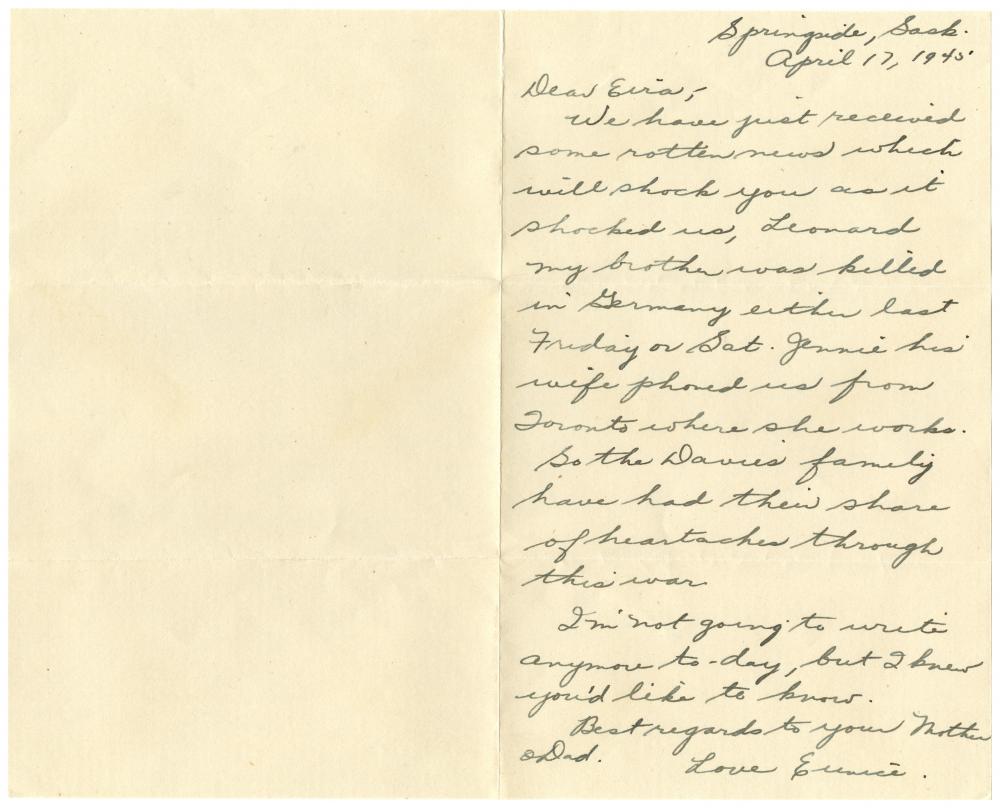 Springside, Sask.
April 17, 1945
Dear Eira,-
We have just received
some rotten news which
will shock you as it
shocked us, Leonard
my brother was killed
in Germany either last
Friday or Sat. Jennie his
wife phoned us from
Toronto where she works.
So the Davies family
have had their share
of heartaches through
this war.
I'm not going to write
anymore to-day, but I knew
you'd like to know.
Best regards to your Mother
& Dad. Love Eunice.